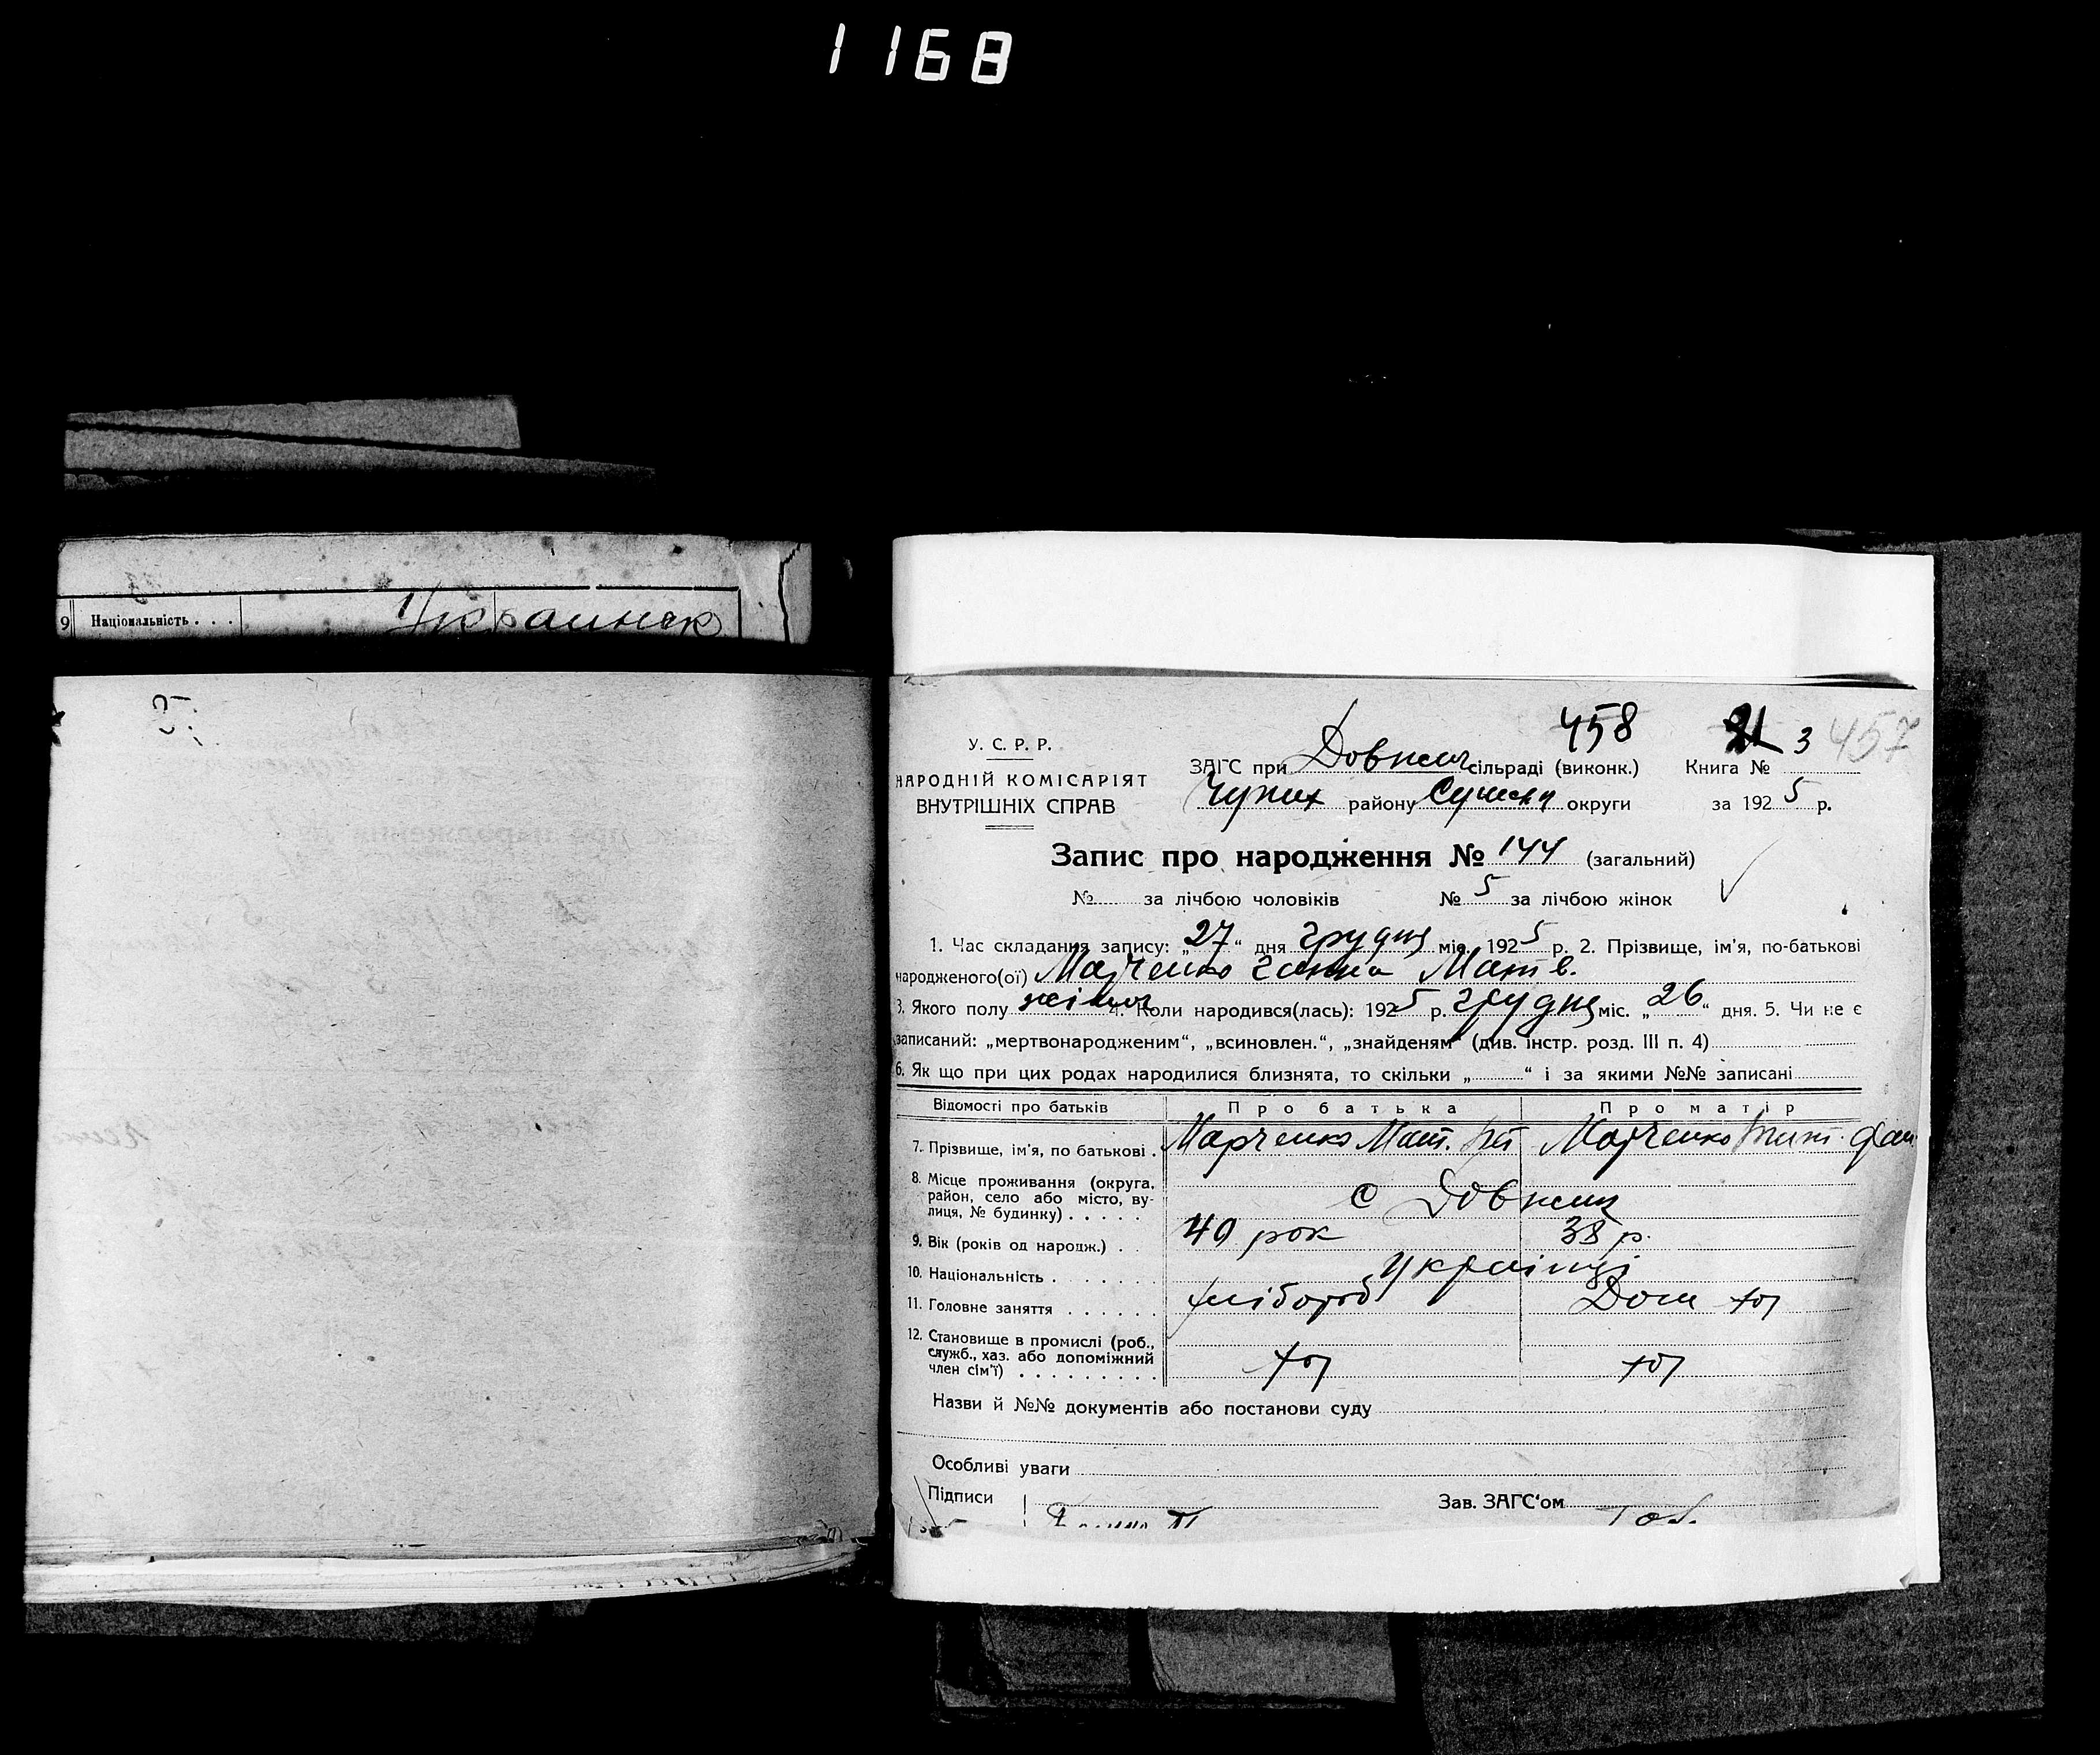 1168
9 Національність . . . Украинск
458 21 3 457
У. С. Р. Р.
НАРОДНІЙ КОМІСАРІЯТ
ВНУТРІШНІХ СПРАВ
ЗАГС при Довжич сільраді (виконк.) Книга №
Чупих району Сумськ округи за 1925 р.
Запис про народження № 144 (загальний)
№ за лічбою чоловіків № 5 за лічбою жінок
1. Час складання запису: „27“ дня грудня міс. 1925 р. 2. Прізвище, ім'я, по-батькові
народженого(ої) Марченко Ганна Матв.
3. Якого полу жіноч 4. Коли народився(лась): 1925 р. грудня міс. „26“ дня. 5. Чи не є
записаний: „мертвонародженим“, „всиновлен.“, „знайденям“ (див. інстр. розд. III п. 4)
6. Як що при цих родах народилися близнята, то скільки „ “ і за якими №№ записані
Відомості про батьків Про батька Про матір
7. Прізвище, ім'я, по батькові . Марченко Мат. Марченко
8. Місце проживання (округа,
район, село або місто, ву-
лиця, № будинку) . . . . . с Довжик
9. Вік (років од народж.) . . 40 рок 38 р.
10. Національність . . . . . . . українці
11. Головне заняття . . . . . . хлібороб Дом хоз
12. Становище в промислі (роб.,
служб., хаз. або допоміжний
член сім'ї) . . . . . . . . . хоз хоз
Назви й №№ документів або постанови суду
Особливі уваги
Підписи Зав. ЗАГС'ом